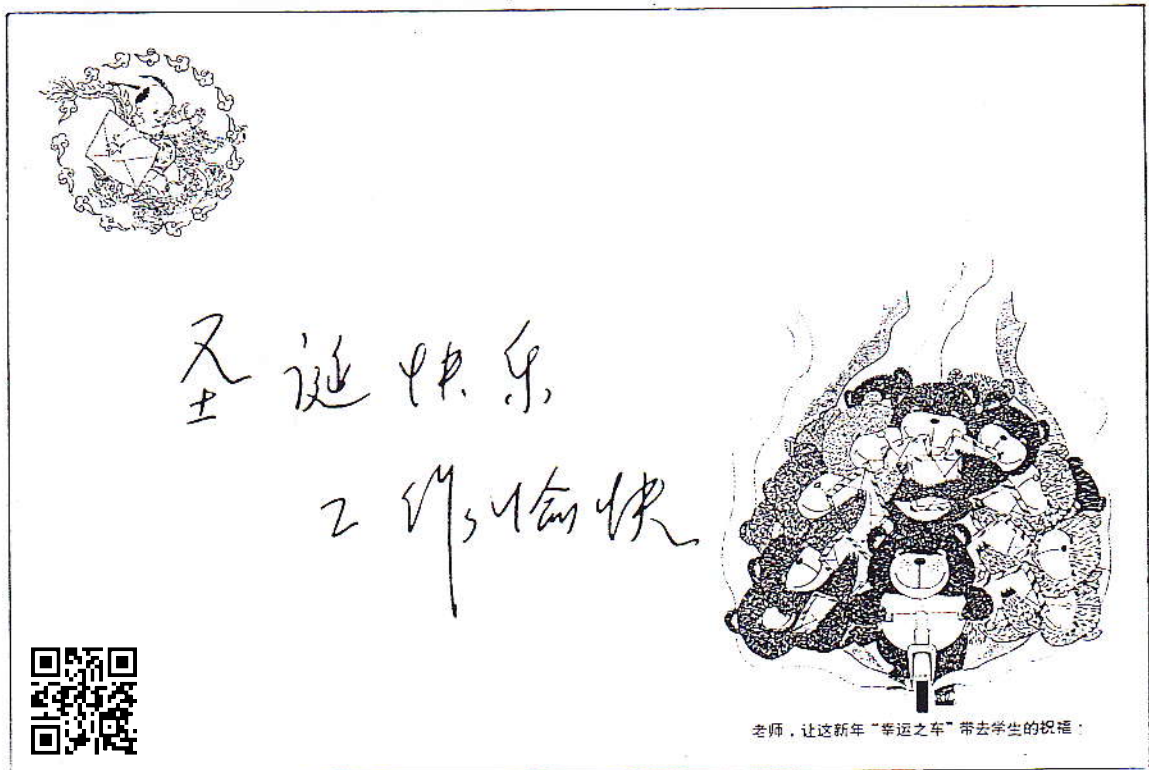 圣诞快乐
工作愉快
老师，让这新年“幸运之车”带去学生的祝福：